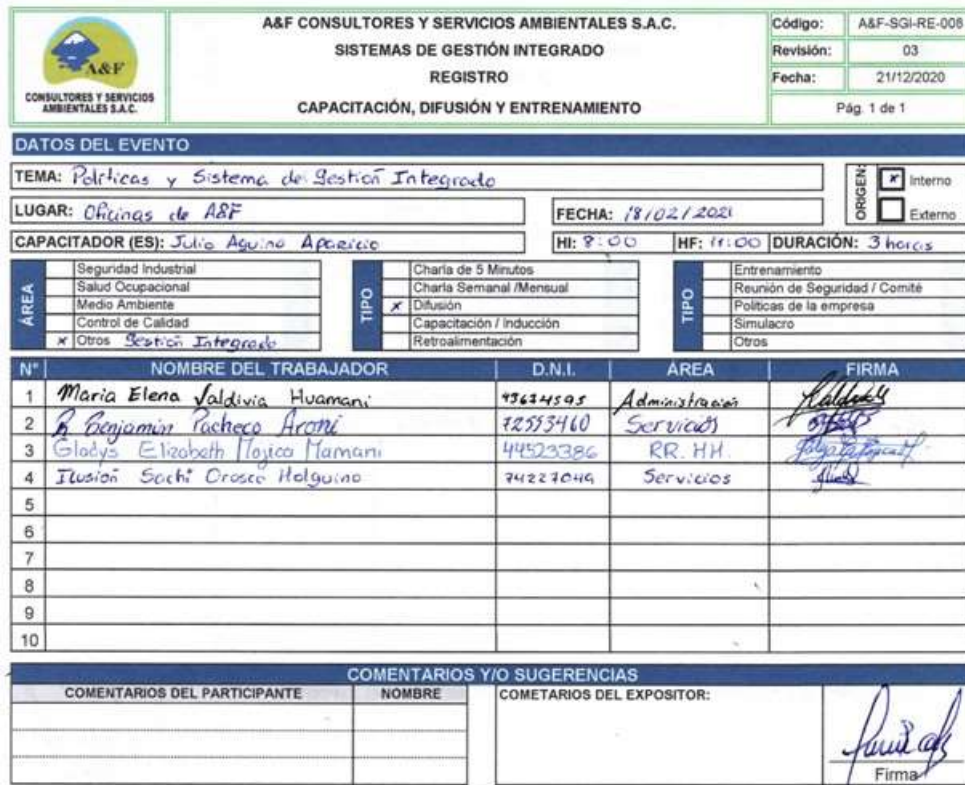 A&F
CONSULTORES Y SERVICIOS
AMBIENTALES S.A.C.
A&F CONSULTORES Y SERVICIOS AMBIENTALES S.A.C.
SISTEMAS DE GESTIÓN INTEGRADO
REGISTRO
CAPACITACIÓN, DIFUSIÓN Y ENTRENAMIENTO
Código: A&F-SGI-RE-006
Revisión: 03
Fecha: 21/12/2020
Pág. 1 de 1
DATOS DEL EVENTO
TEMA: Políticas y Sistema de Gestión Integrado
ORIGEN: x Interno
Externo
LUGAR: Oficinas de A&F FECHA: 18/02/2021
CAPACITADOR (ES): Julio Aquino Aparicio HI: 8:00 HF: 11:00 DURACIÓN: 3 horas
ÁREA
Seguridad Industrial
Salud Ocupacional
Medio Ambiente
Control de Calidad
x Otros Gestión Integrado
TIPO
Charla de 5 Minutos
Charla Semanal /Mensual
x Difusión
Capacitación / Inducción
Retroalimentación
TIPO
Entrenamiento
Reunión de Seguridad / Comité
Políticas de la empresa
Simulacro
Otros
N° NOMBRE DEL TRABAJADOR D.N.I. ÁREA FIRMA
1 Maria Elena Valdivia Huamani Administración
2 R Benjamín Pacheco Aroni 72553460 Servicios
3 Gladys Elizabeth Mojica Mamani 44523386 RR. HH.
4 Ilusión Sachi Orosco Holguino 74227049 Servicios
5
6
7
8
9
10
COMENTARIOS Y/O SUGERENCIAS
COMENTARIOS DEL PARTICIPANTE NOMBRE COMETARIOS DEL EXPOSITOR:
Firma